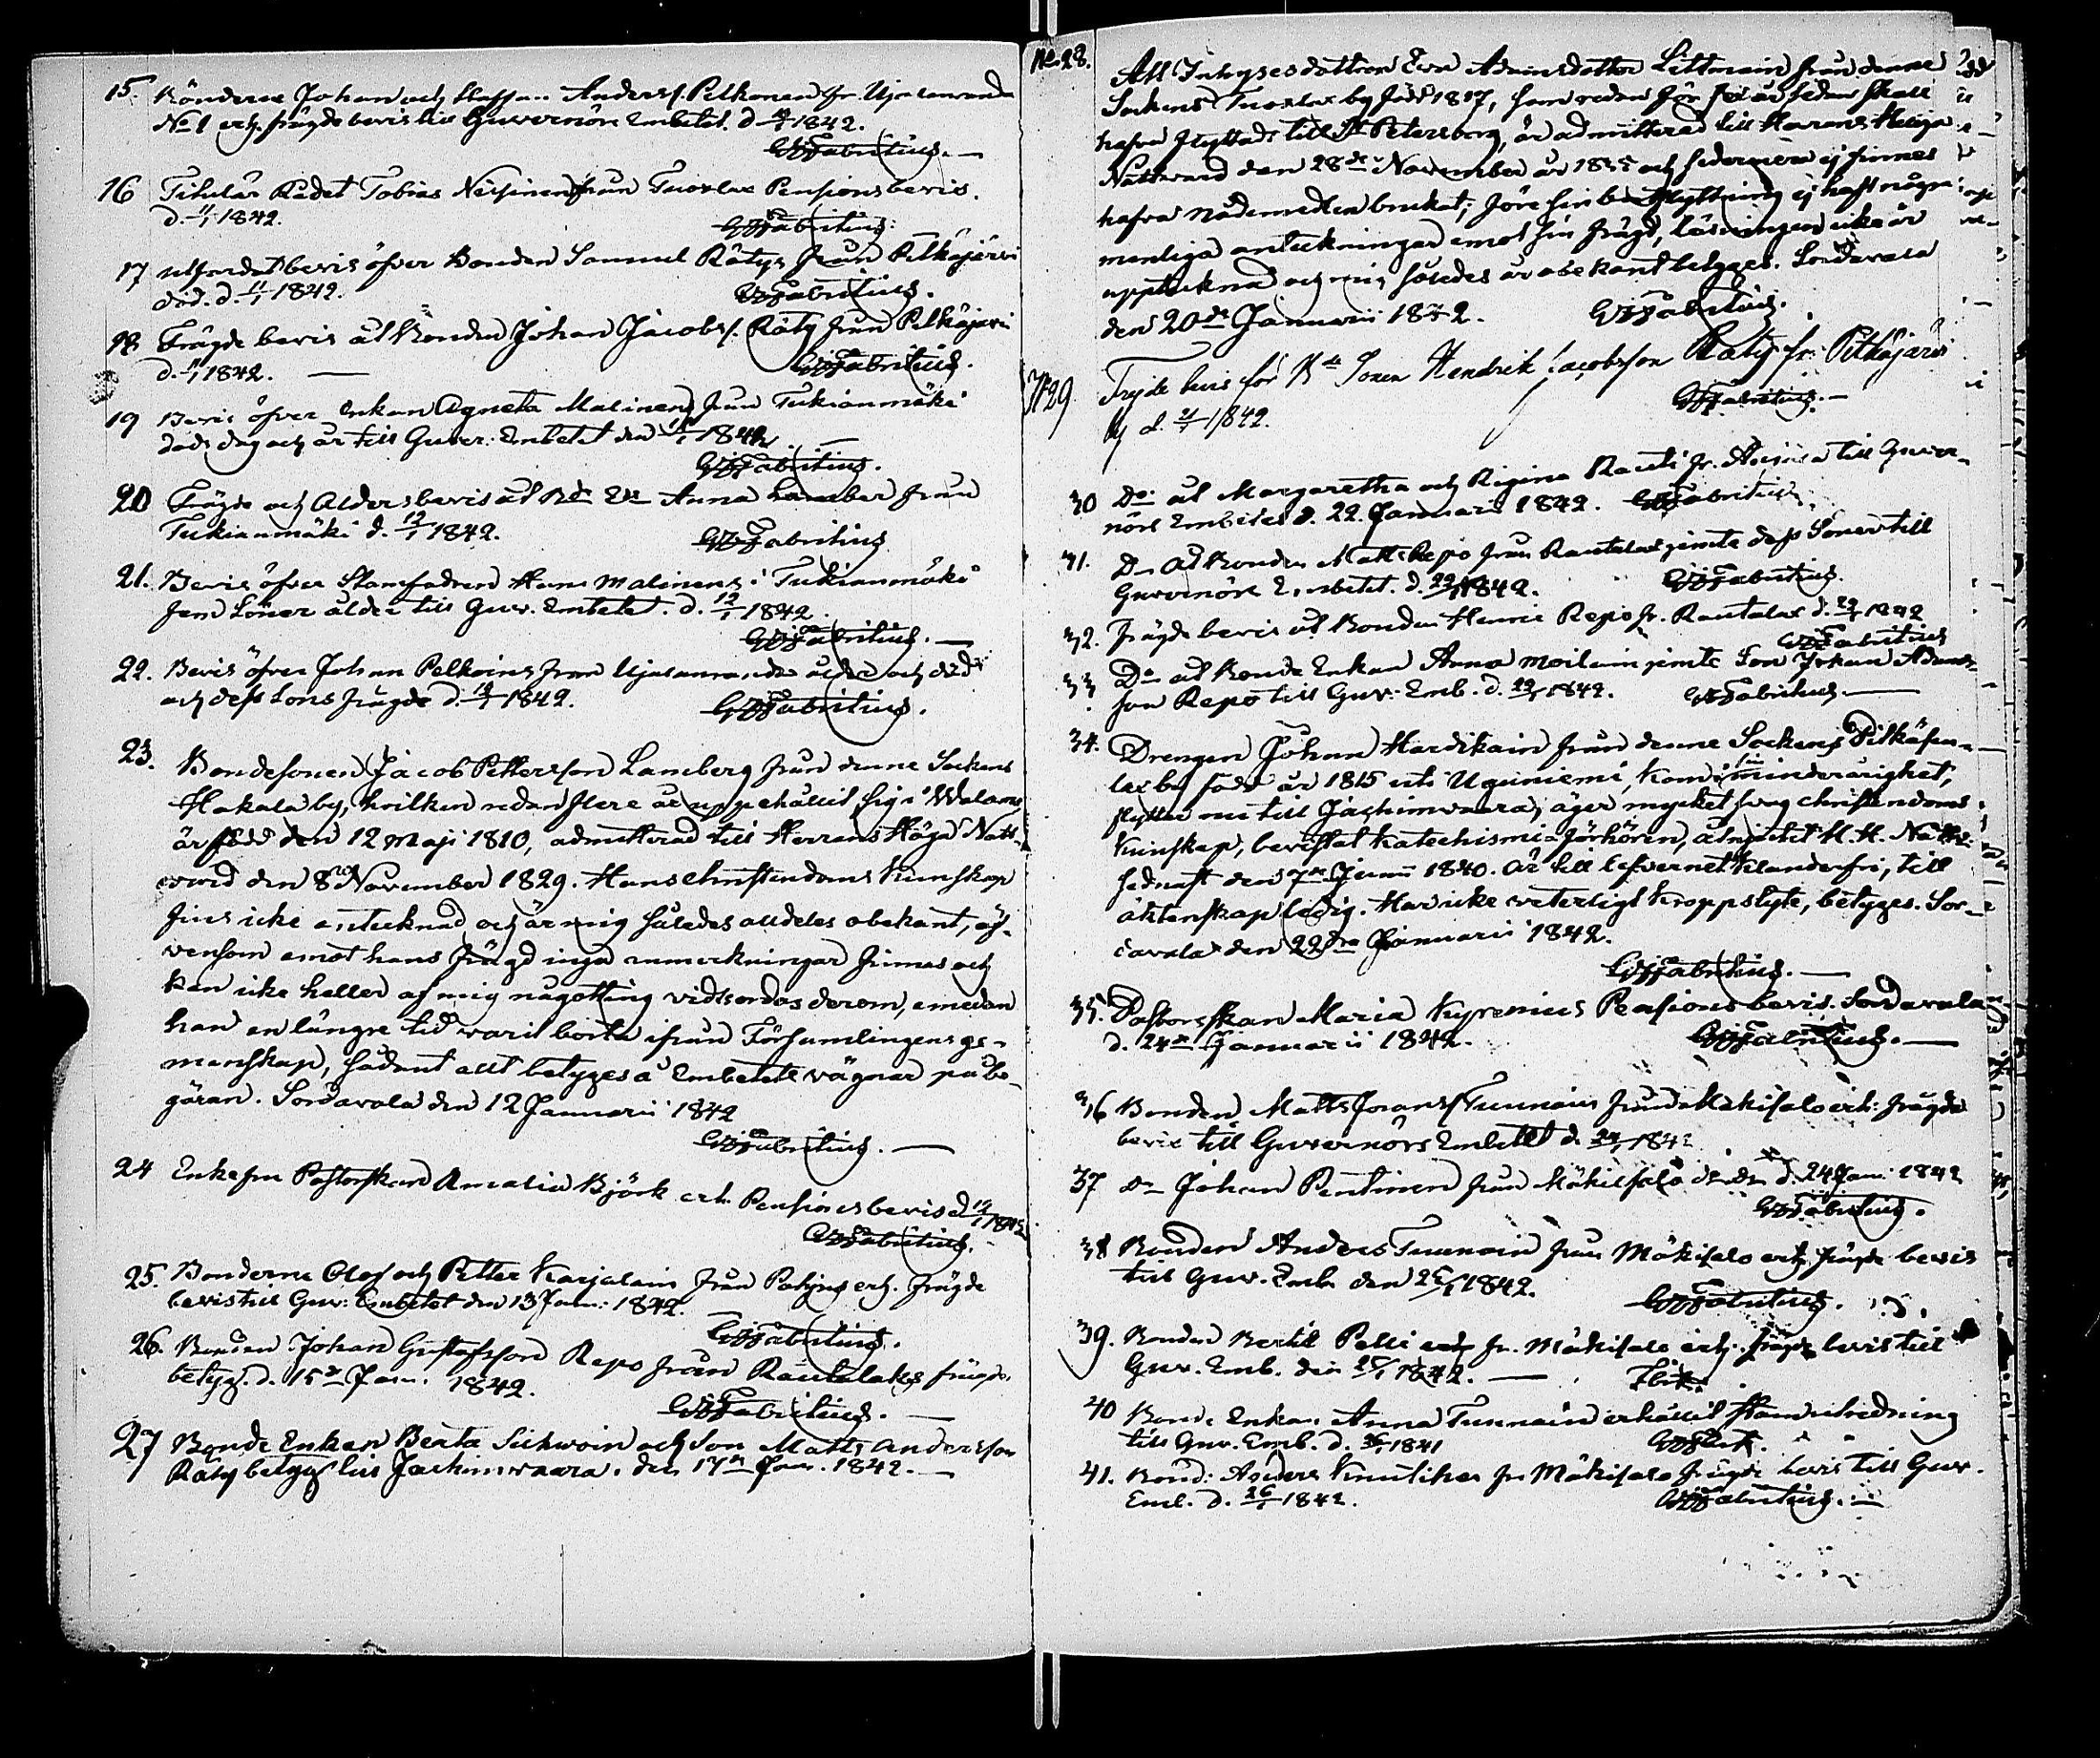 15. Bönderne Johan och Staffan Anderss. Pelkonen fr. Ujalanranda
No 1 erh. frägde bevis till Guvernörs Embetet. d. 1842.
GJFabritius.
16 Titulär Rådet Tobias Neisinen från Tuoslax Pensions bevis.
d. 11/1 1842.
GJFabritius.
17 utfärdat bevis öfver Bonden Samuel Rätys från Pitkäjärvi
död. d. 11/1 1842.
GJFabritius.
18 Frägde bevis åt Bonden Johan Jacobss. Räty från Pitkäjärvi
d. 1842.
GJFabritius.
19 Bevis öfver Enkan Agneta Malinen från Tukianmäki
döds dag och år till Guver. Embetet den 1842.
GJFabritius.
20 Frägde och Alders bevis åt Anna Lamber från
Tukianmäki d. 12/1 1842.
GJFabritius
21. Bevis öfver Stamfadren Hans Malinens i Tukianmäki
fem Söner ålder till Guv. Embetet. d. 12/1 1842.
GJFabritius.
22. Bevis öfver Johan Pelkoins från Ujalanranda ålder och död
och dess Sons frägde d. 1842.
GJFabritius.
23. Bondesonen Jacob Pettersson Lamberg från denne Sockens
Hakala by, hvilken redan flere år uppehållit sig i Walamo
är född den 12 Maji 1810, admitterad till Herrans Höga Natt-
vard den 8de November 1829. Hans christendoms kunskap
fins icke antecknad och är mig således alldeles obekant, äf-
vensom emot hans frägd inga anmerkningar finnas och
kan icke heller af mig någotting vidsordas derom, emedan
han en längre tid varit borta ifrån Församlingens ge-
menskap, sådant allt betyges å Embetets vägnar på be-
gäran. Sordavala den 12 Januarii 1842
GJFabritius.
24 Enkefru Pastorskan Amalia Björk erh. Pensions bevis d.
GJFabritius.
25. Bönderne Olof och Petter Karjalain från erh. frägde
bevis till Guv: Embetet den 13 Jan: 1842.
GJFabritius.
26. Bonden Johan Gustafsson Repo från Rautalaks frägde
betyg. d. 15de Jan. 1842.
GJFabritius.
27 Bonde Enkan Berta Sickvoin och Son Matts Andersson
Räty betyg till Jackimvaara. den 17de Jan. 1842.
No 28. Att Inhyses dottren Eva Adamsdotter Littmain från denne
Sockens Tuoslax by född 1817, som redan för år sedan skall
hafva flyttat till St Petersborg, är admitterad till Herrans Heliga
Nattvard den 28de November år och sedermera ej finnes
hafva nådemedlen brukat; före sin bortflyttning ej haft några
menliga anteckningar emot sin frägd, läsningen icke är
upptecknad och mig således är obekant betyges. Sordavala
den 20de Januarii 1842.
GJFabritius.
No 29. Frejde bevis för Bde Sonen Hendrik Jacobsson Räty fr. Pitkäjärvi
by d. 21/1 1842.
GJFabritius.
30 Do åt Margaretha och Regina Rauti fr. till Guver-
nörs Embetet d. 22 Januari 1842. GJFabritius
31. Do åt Bonden Matts Repo från Rautalax jemte dess Söner till
Guvernörs Embetet. d. 22/1 1842.
GJFabritius.
32. Frägde bevis åt Bonden Henric Repo fr. Rautalax d. 22/1 1842
GJFabritius
33 Do åt Bonde Enkan Anna Moilain jemte Son Johan Adams-
son Repo till Guv. Emb. d. 22/1 1842. GJFabritius.
34. Drengen Johan Hardikain från denne Sockens Pitkäsen-
lax by född år 1815 uti Uguniemi, kom i sin minderårighet,
flyttar nu till Jackimvaara; äger mycket svag christendoms
kunskap, bevistat Katechismi-förhören, åtnjutit H. H. Nattv:
sednast den 7de Junii 1840. Är till lefvernet klanderfri, till
äktenskap ledig. Har icke veterligt kroppslyte, betyges. Sor-
davala den 22dra Januarii 1842.
GJFabritius.
35. Pastorsskan Maria Kyrenius Pensions bevis. Sordavala
d. 24de Januarii 1842.
GJFabritius.
36 Bonden Matts Joranss. Tuunain från Mäkisalo erh: frägde
bevis till Guvernörs Embetet d. 24/1 1842
37 Do Johan Pentinen från Mäkisalo d. 24 Jan. 1842
GJFabritius.
38 Bonden Anders Tuunain från Mäkisalo erh. frägde bevis
till Guv. Emb. den 25/1 1842.
GJFabritius.
39. Bonden Bertil Pelli fr. Mäkisalo erh. frägde bevis till
Guv. Emb. den 25/1 1842.
40 Bonde Enkan Anna Tuunain erhållit Stamutredning
till Guv. Emb. d. 26/1 1841
41. Bond: Anders fr. Mäkisalo frägde bevis till Guv.
Emb. d. 26/1 1842.
GJFabritius.